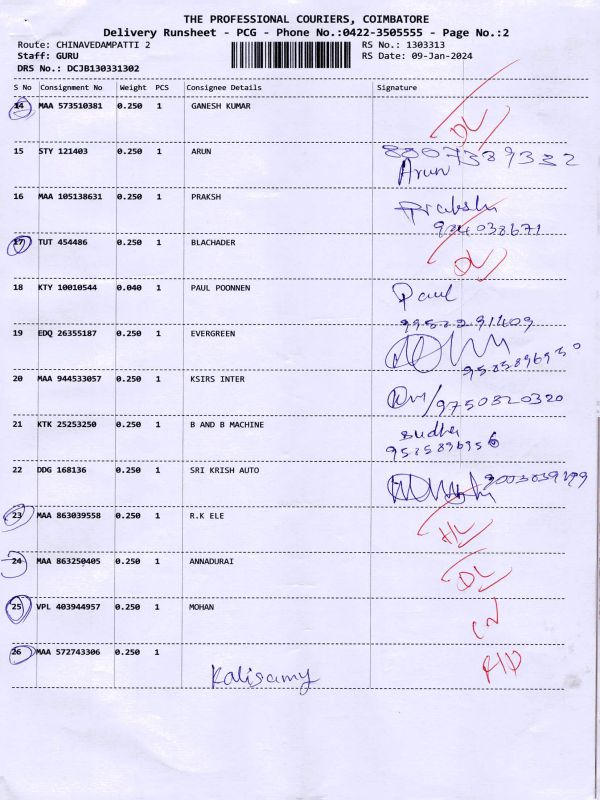 THE PROFESSIONAL COURIERS, COIMBATORE
Delivery Runsheet - PCG - Phone No.:0422-3505555 - Page No.:2
Route: CHINAVEDAMPATTI 2 RS No.: 1303313
Staff: GURU RS Date: 09-Jan-2024
DRS No.: DCJB130331302
S No Consignment No Weight PCS Consignee Details Signature
14 MAA 573510381 0.250 1 GANESH KUMAR DL
15 STY 121403 0.250 1 ARUN 8807389332
Arun
16 MAA 105138631 0.250 1 PRAKSH Prakash
17 TUT 454486 0.250 1 BLACHADER DL
18 KTY 10010544 0.040 1 PAUL POONNEN Paul
19 EDQ 26355187 0.250 1 EVERGREEN
20 MAA 944533057 0.250 1 KSIRS INTER 9750820320
21 KTK 25253250 0.250 1 B AND B MACHINE Sudha
22 DDG 168136 0.250 1 SRI KRISH AUTO
23 MAA 863039558 0.250 1 R.K ELE HL
24 MAA 863250405 0.250 1 ANNADURAI DL
25 VPL 403944957 0.250 1 MOHAN CN
26 MAA 572743306 0.250 1
Kalisamy